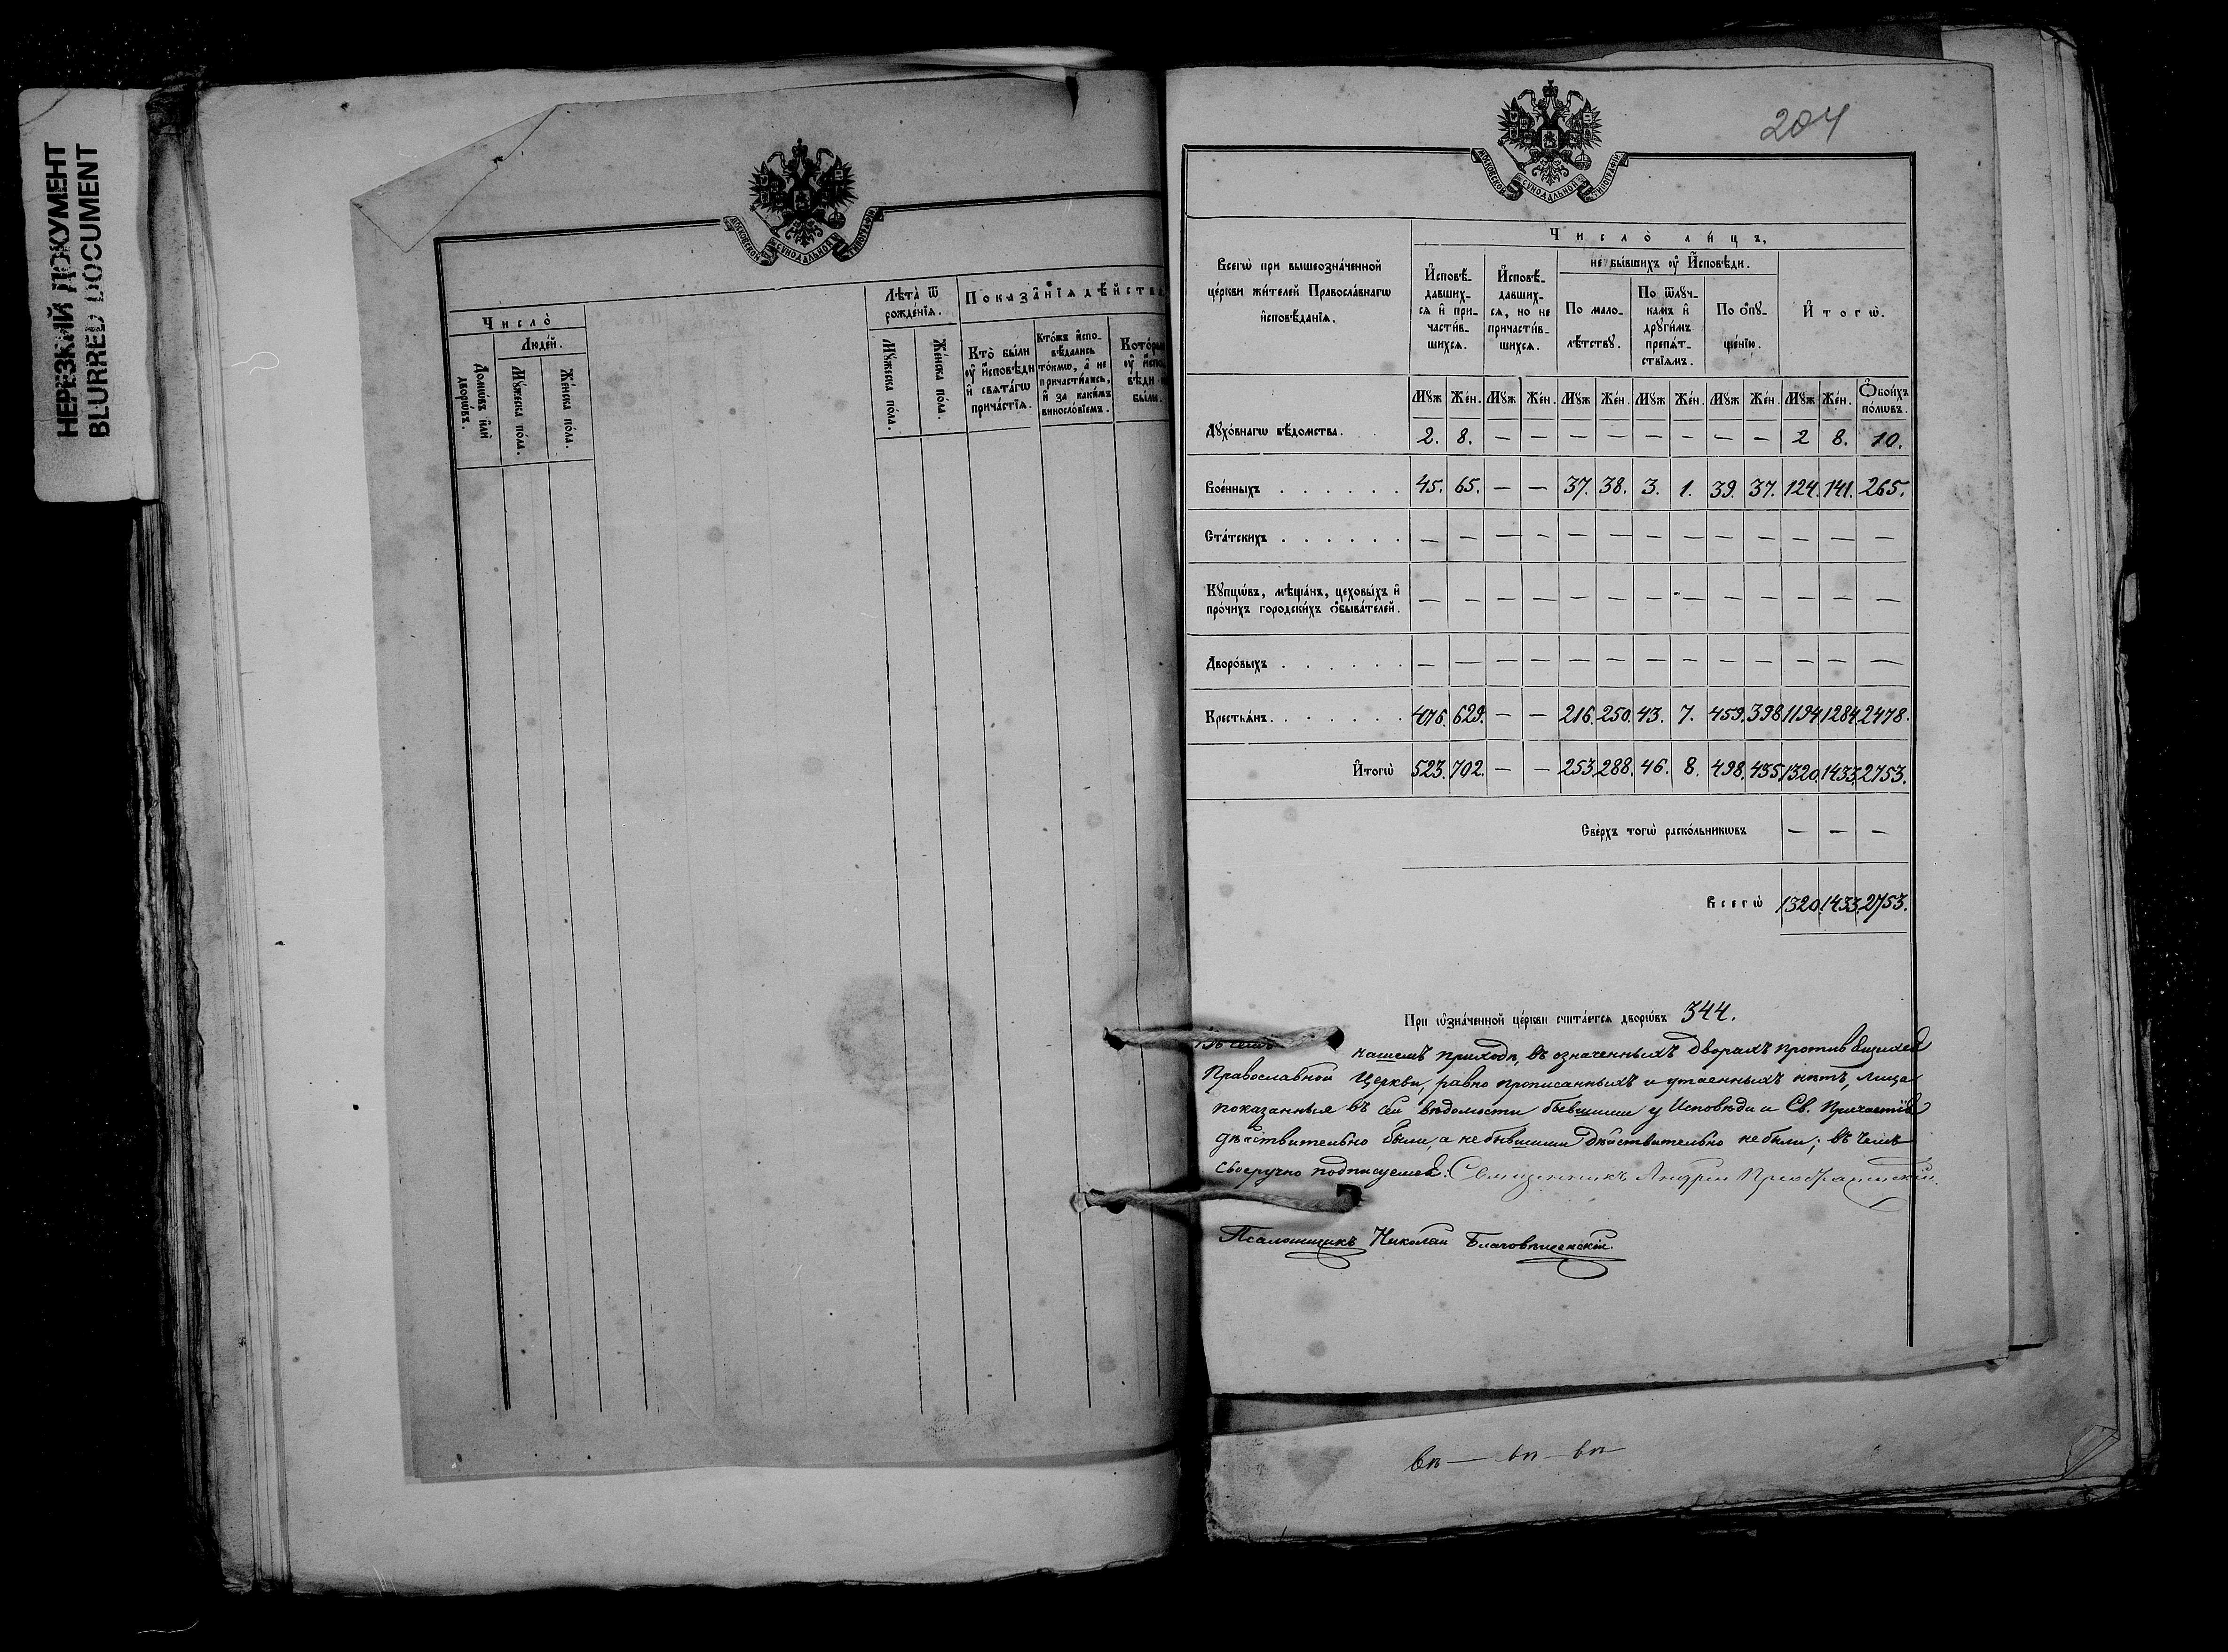 НЕРЕЗКИЙ ДОКУМЕНТ
BLURRED DOCUMENT
МОСКОВСКОЙ СѴНОДАЛЬНОЙ ТИПОГРАФІИ
Число̀
Люде́й.
Домѡ́въ и҆лѝ дворѡ́въ.
Мꙋ́жеска по́ла.
Же́нска по́ла.
Лѣ́та ѿ рожде́нїѧ.
Мꙋ́жеска по́ла.
Же́нска по́ла.
Показа̑нїѧ дѣ́йства
Кто̀ бы́ли оу҆ и҆сповѣ́ди и҆ свѧта́гѡ прича́стїѧ.
Кто́жъ и҆спо-
вѣ́дались
то́кмѡ, а҆ не
причасти́лись,
и҆ за каки́мъ
винослѡ́вїемъ.
204
МОСКОВСКОЙ СѴНОДАЛЬНОЙ ТИПОГРАФІИ
Число̀ ли́цъ,
Всегѡ̀ при вышеозна́ченной
це́ркви жи́телей Правосла́внагѡ
и҆сповѣ́данїѧ.
И҆сповѣ́-
давших-
сѧ и҆ при-
части́в-
шихсѧ.
И҆сповѣ́-
давших-
сѧ, но не
причасти́в-
шихсѧ.
не бы́вшихъ оу҆ И҆сповѣ́ди.
По мало-
лѣ́тствꙋ.
По ѿлꙋ́ч-
камъ и҆
дрꙋги́мъ
препѧ́т-
ствїѧмъ.
По ѻ҆пꙋ-
ще́нїю.
И҆тогѡ̀.
Мꙋж Же́н. Мꙋж Же́н. Мꙋж Же́н. Мꙋж Же́н. Мꙋж Же́н. Мꙋж Же́н. Ѻ҆бои́хъ по́лѡвъ.
Дꙋхо́внагѡ вѣ́домства. 2. 8. — — — — — — — — 2 8. 10.
Вое́нныхъ . . . . . . 45. 65. — — 37. 38. 3. 1. 39. 37. 124. 141. 265.
Ста́тскихъ . . . . . . — — — — — — — — — — — — —
Кꙋпцѡ́въ, мѣща́нъ, цеховы́хъ и҆
про́чихъ городски́хъ ѻ҆быва́телей. — — — — — — — — — — — — —
Дворо́выхъ . . . . . . — — — — — — — — — — — — —
Крестьѧ́нъ. . . . . . . 476. 629. — — 216. 250. 43. 7. 459. 398 1194. 1284. 2478.
И҆тогѡ̀ 523. 702. — — 253. 288. 46. 8. 498. 435 1320. 1433. 2753.
Све́рхъ тогѡ̀ раско́льникѡвъ — — —
Всегѡ̀ 1320. 1433. 2753.
При ѡ҆зна́ченной це́ркви счита́етсѧ дворѡ́въ 344.
нашемъ приходѣ, въ означенныхъ дворахъ противящихся
Православной Церкви, равно прописанныхъ и утаенныхъ нѣтъ, лица
показанныя въ сей вѣдомости бывшими у Исповѣди и Св. Причастія
дѣйствительно были, а небывшими дѣйствительно небыли; въ чемъ
своеручно подписуемся: Священникъ Андрей Преображенскій.
Псаломщикъ Николай Благовѣщенскій.